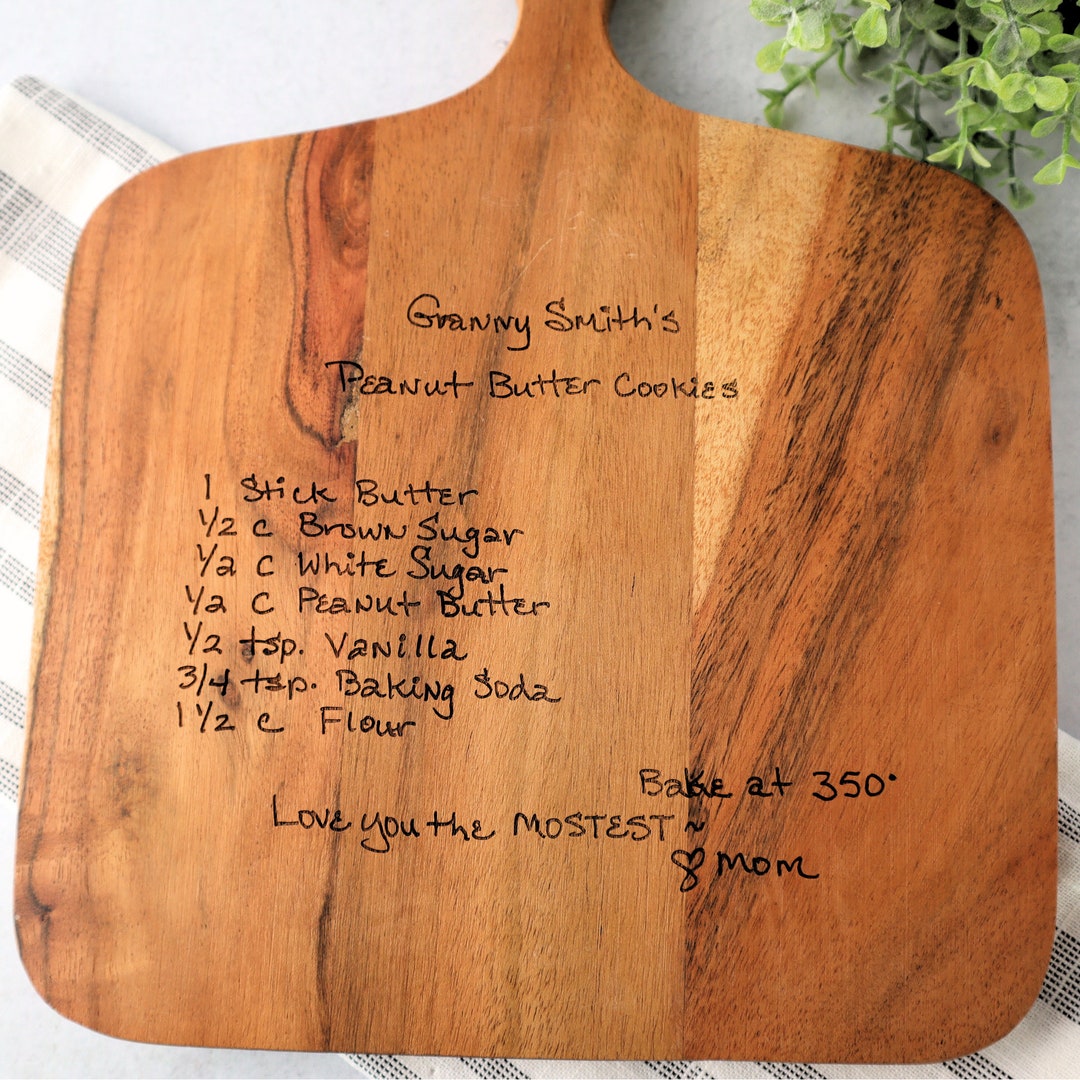 Granny Smith's
Peanut Butter Cookies
1 Stick Butter
1/2 c Brown Sugar
1/2 c White Sugar
1/2 c Peanut Butter
1/2 tsp. Vanilla
3/4 tsp. Baking Soda
1 1/2 c Flour
Bake at 350°
Love you the MOSTEST ~
♡ Mom